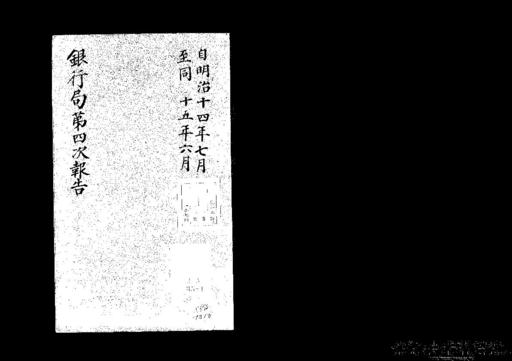 自明治十四年七月
至同 十五年六月
銀行局第四次報告